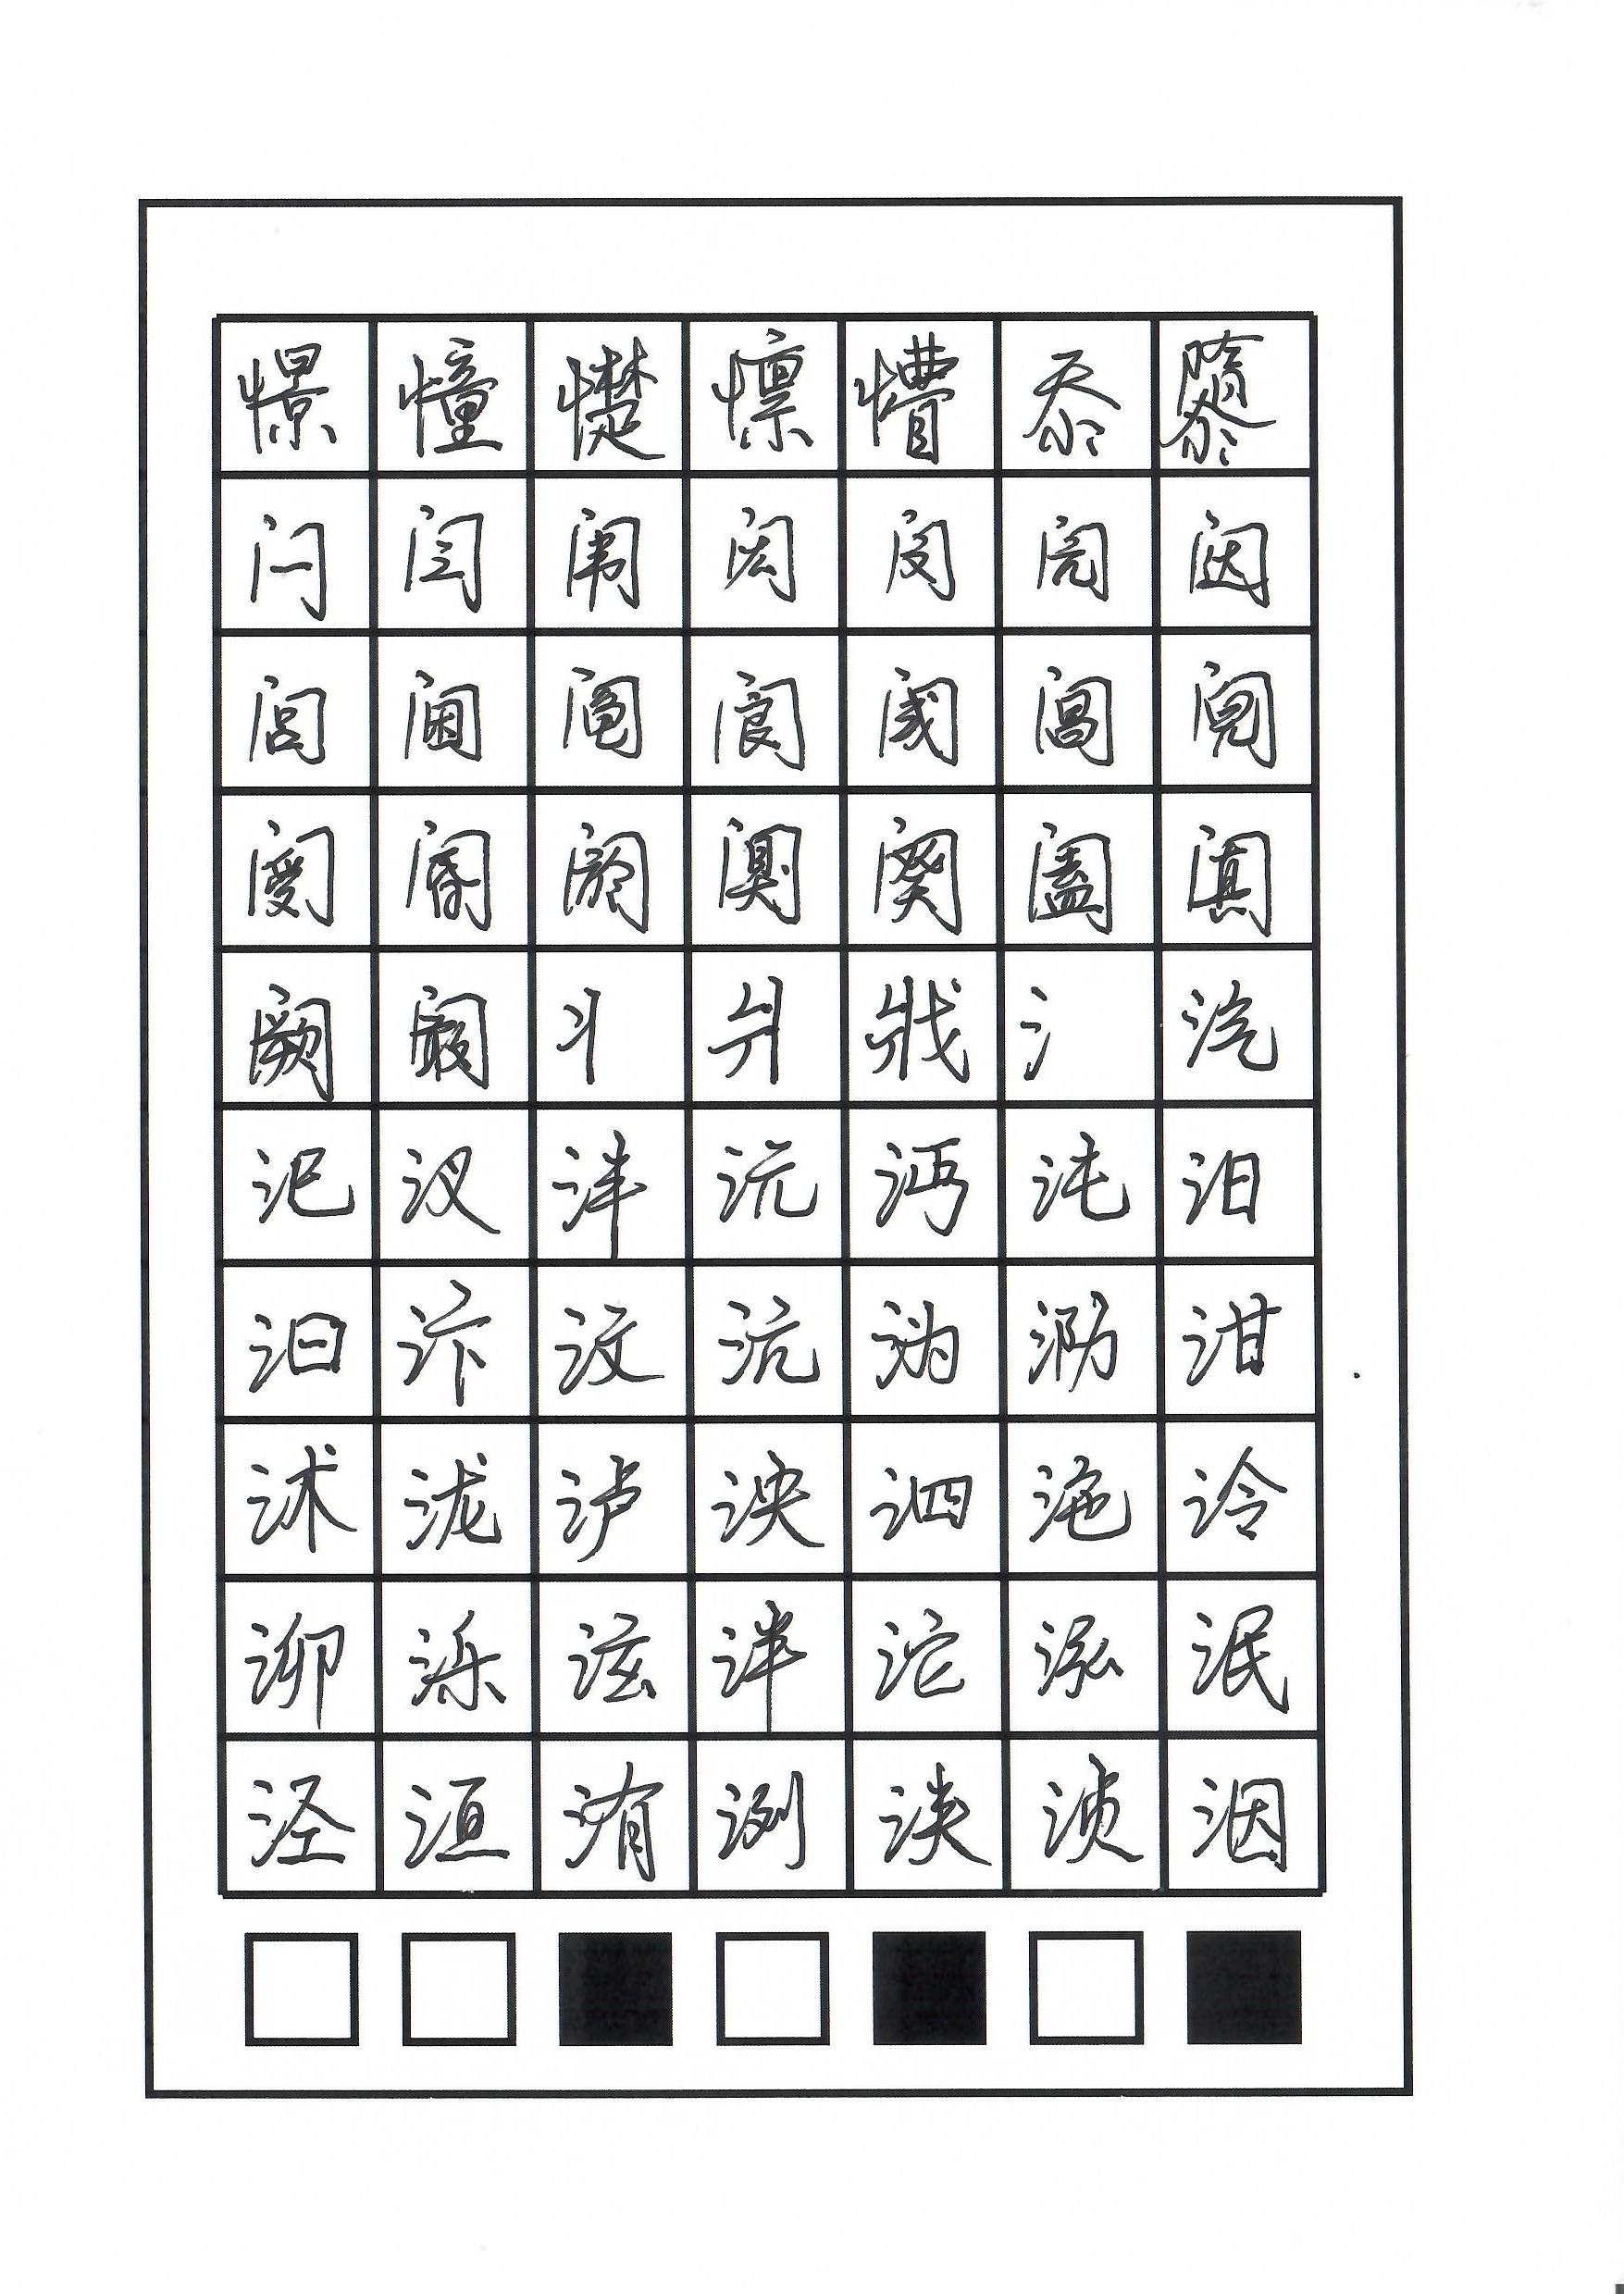 憬憧憷懔懵忝隳
闩闫闱闳闵闶闼
闾阃阄阆阈阊阋
阌阍阏阒阕阖阗
阙阚丬爿戕氵汔
汜汊沣沅沔沌汨
汩汴汶沆沩泐泔
沭泷泸泱泗沲泠
泖泺泫泮沱泓泯
泾洹洧洌浃浈洇